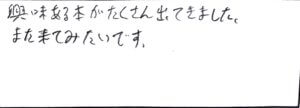 興味ある本がたくさん出てきました。
また来てみたいです。